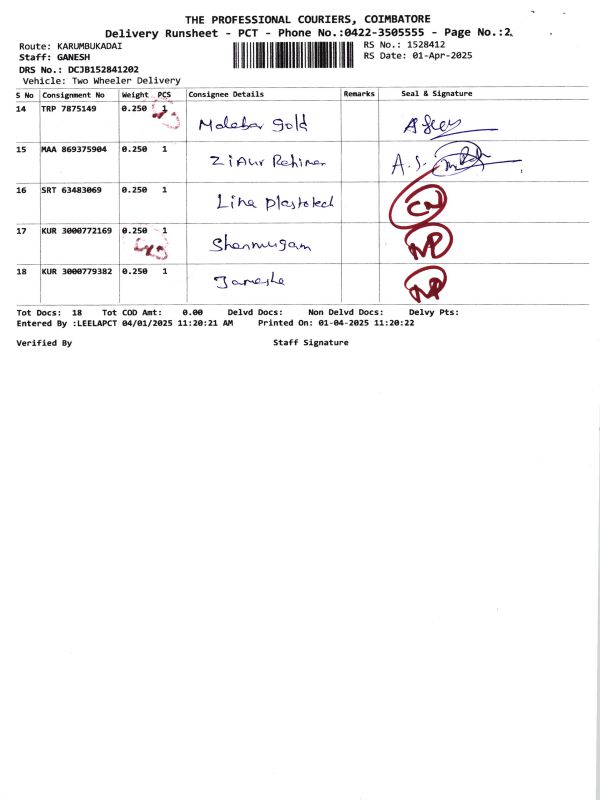 THE PROFESSIONAL COURIERS, COIMBATORE
Delivery Runsheet - PCT - Phone No.:0422-3505555 - Page No.:2
Route: KARUMBUKADAI RS No.: 1528412
Staff: GANESH RS Date: 01-Apr-2025
DRS No.: DCJB152841202
Vehicle: Two Wheeler Delivery
S No Consignment No Weight PCS Consignee Details Remarks Seal & Signature
14 TRP 7875149 0.250 1 Malabar Gold
15 MAA 869375904 0.250 1 Ziaur Rehiman A.S.
16 SRT 63483069 0.250 1 Lina plastotech CN
17 KUR 3000772169 0.250 1 Shanmugam NP
18 KUR 3000779382 0.250 1 NP
Tot Docs: 18 Tot COD Amt: 0.00 Delvd Docs: Non Delvd Docs: Delvy Pts:
Entered By :LEELAPCT 04/01/2025 11:20:21 AM Printed On: 01-04-2025 11:20:22
Verified By Staff Signature